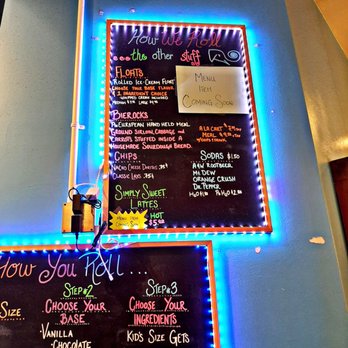 How We Roll
...the other stuff
Floats
Rolled Ice-Cream Float
Choose your base flavor
1 Ingredient choice
Menu
Item
Coming Soon
Bierocks
European hand held meal.
Ground sirloin, cabbage and
carrots stuffed inside a
homemade sourdough bread.
A la carte
Meal
Chips
Nacho Cheese Doritos
Classic Lays
Sodas $1.50
A&W Rootbeer
Mt. Dew
Orange Crush
Dr. Pepper
Simply Sweet
Lattes
Hot
Menu Item
Coming Soon
How You Roll...
Size
Step #2
Choose Your
Base
Vanilla
Chocolate
Step #3
Choose Your
Ingredients
Kid's Size Gets